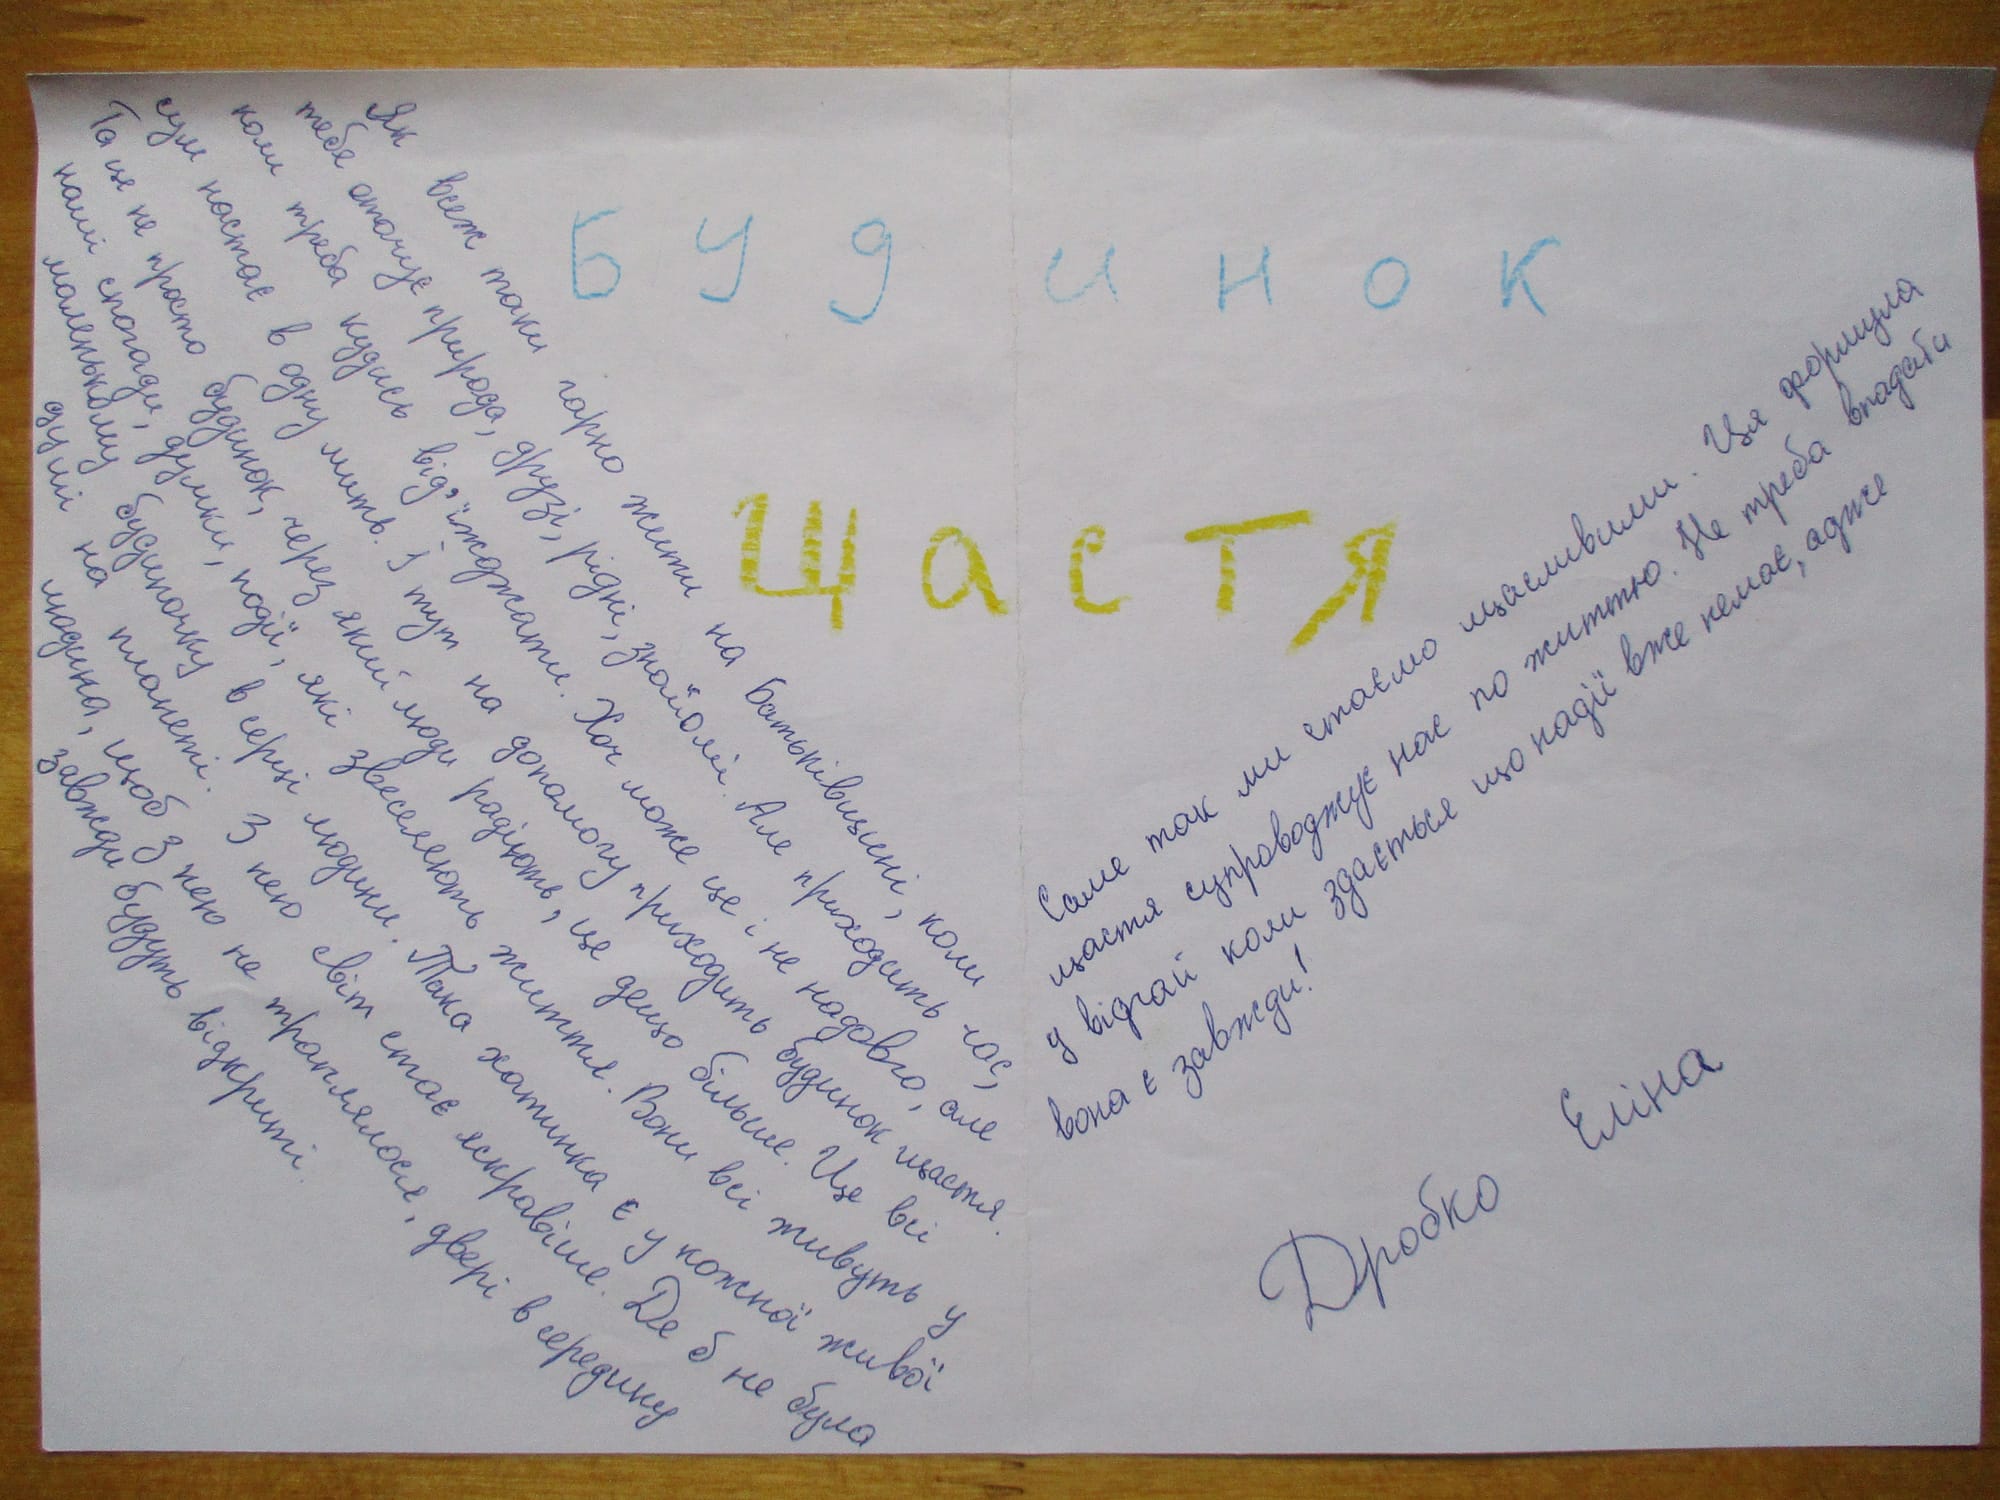 Будинок
Щастя
Як всеж таки гарно жити на батьківщині, коли
тебя оточує природа, друзі, рідні, знайомі. Але приходить час,
коли треба кудись від,їжджати. Хоч може це і не надовго, але
сум настає в одну мить. І тут на допомогу приходить будинок щастя.
Та це не просто будинок, через який люди радіють, це дещо більше. Це всі
наші спогади, думки, події, які звеселяють життя. Вони всі живуть у
маленькому будиночку в серці людини. Така хатинка є у кожної живої
душі на планеті. З нею світ стає яскравіше. Де б не була
людина, щоб з нею не траплялося, двері в середину
завжди будуть відкриті.
Саме так ми стаємо щасливими. Ця формула
щастя супроводжує нас по життю. Не треба впадати
у відчай коли здається що надії вже немає, адже
вона є завжди!
Дробко Еліна